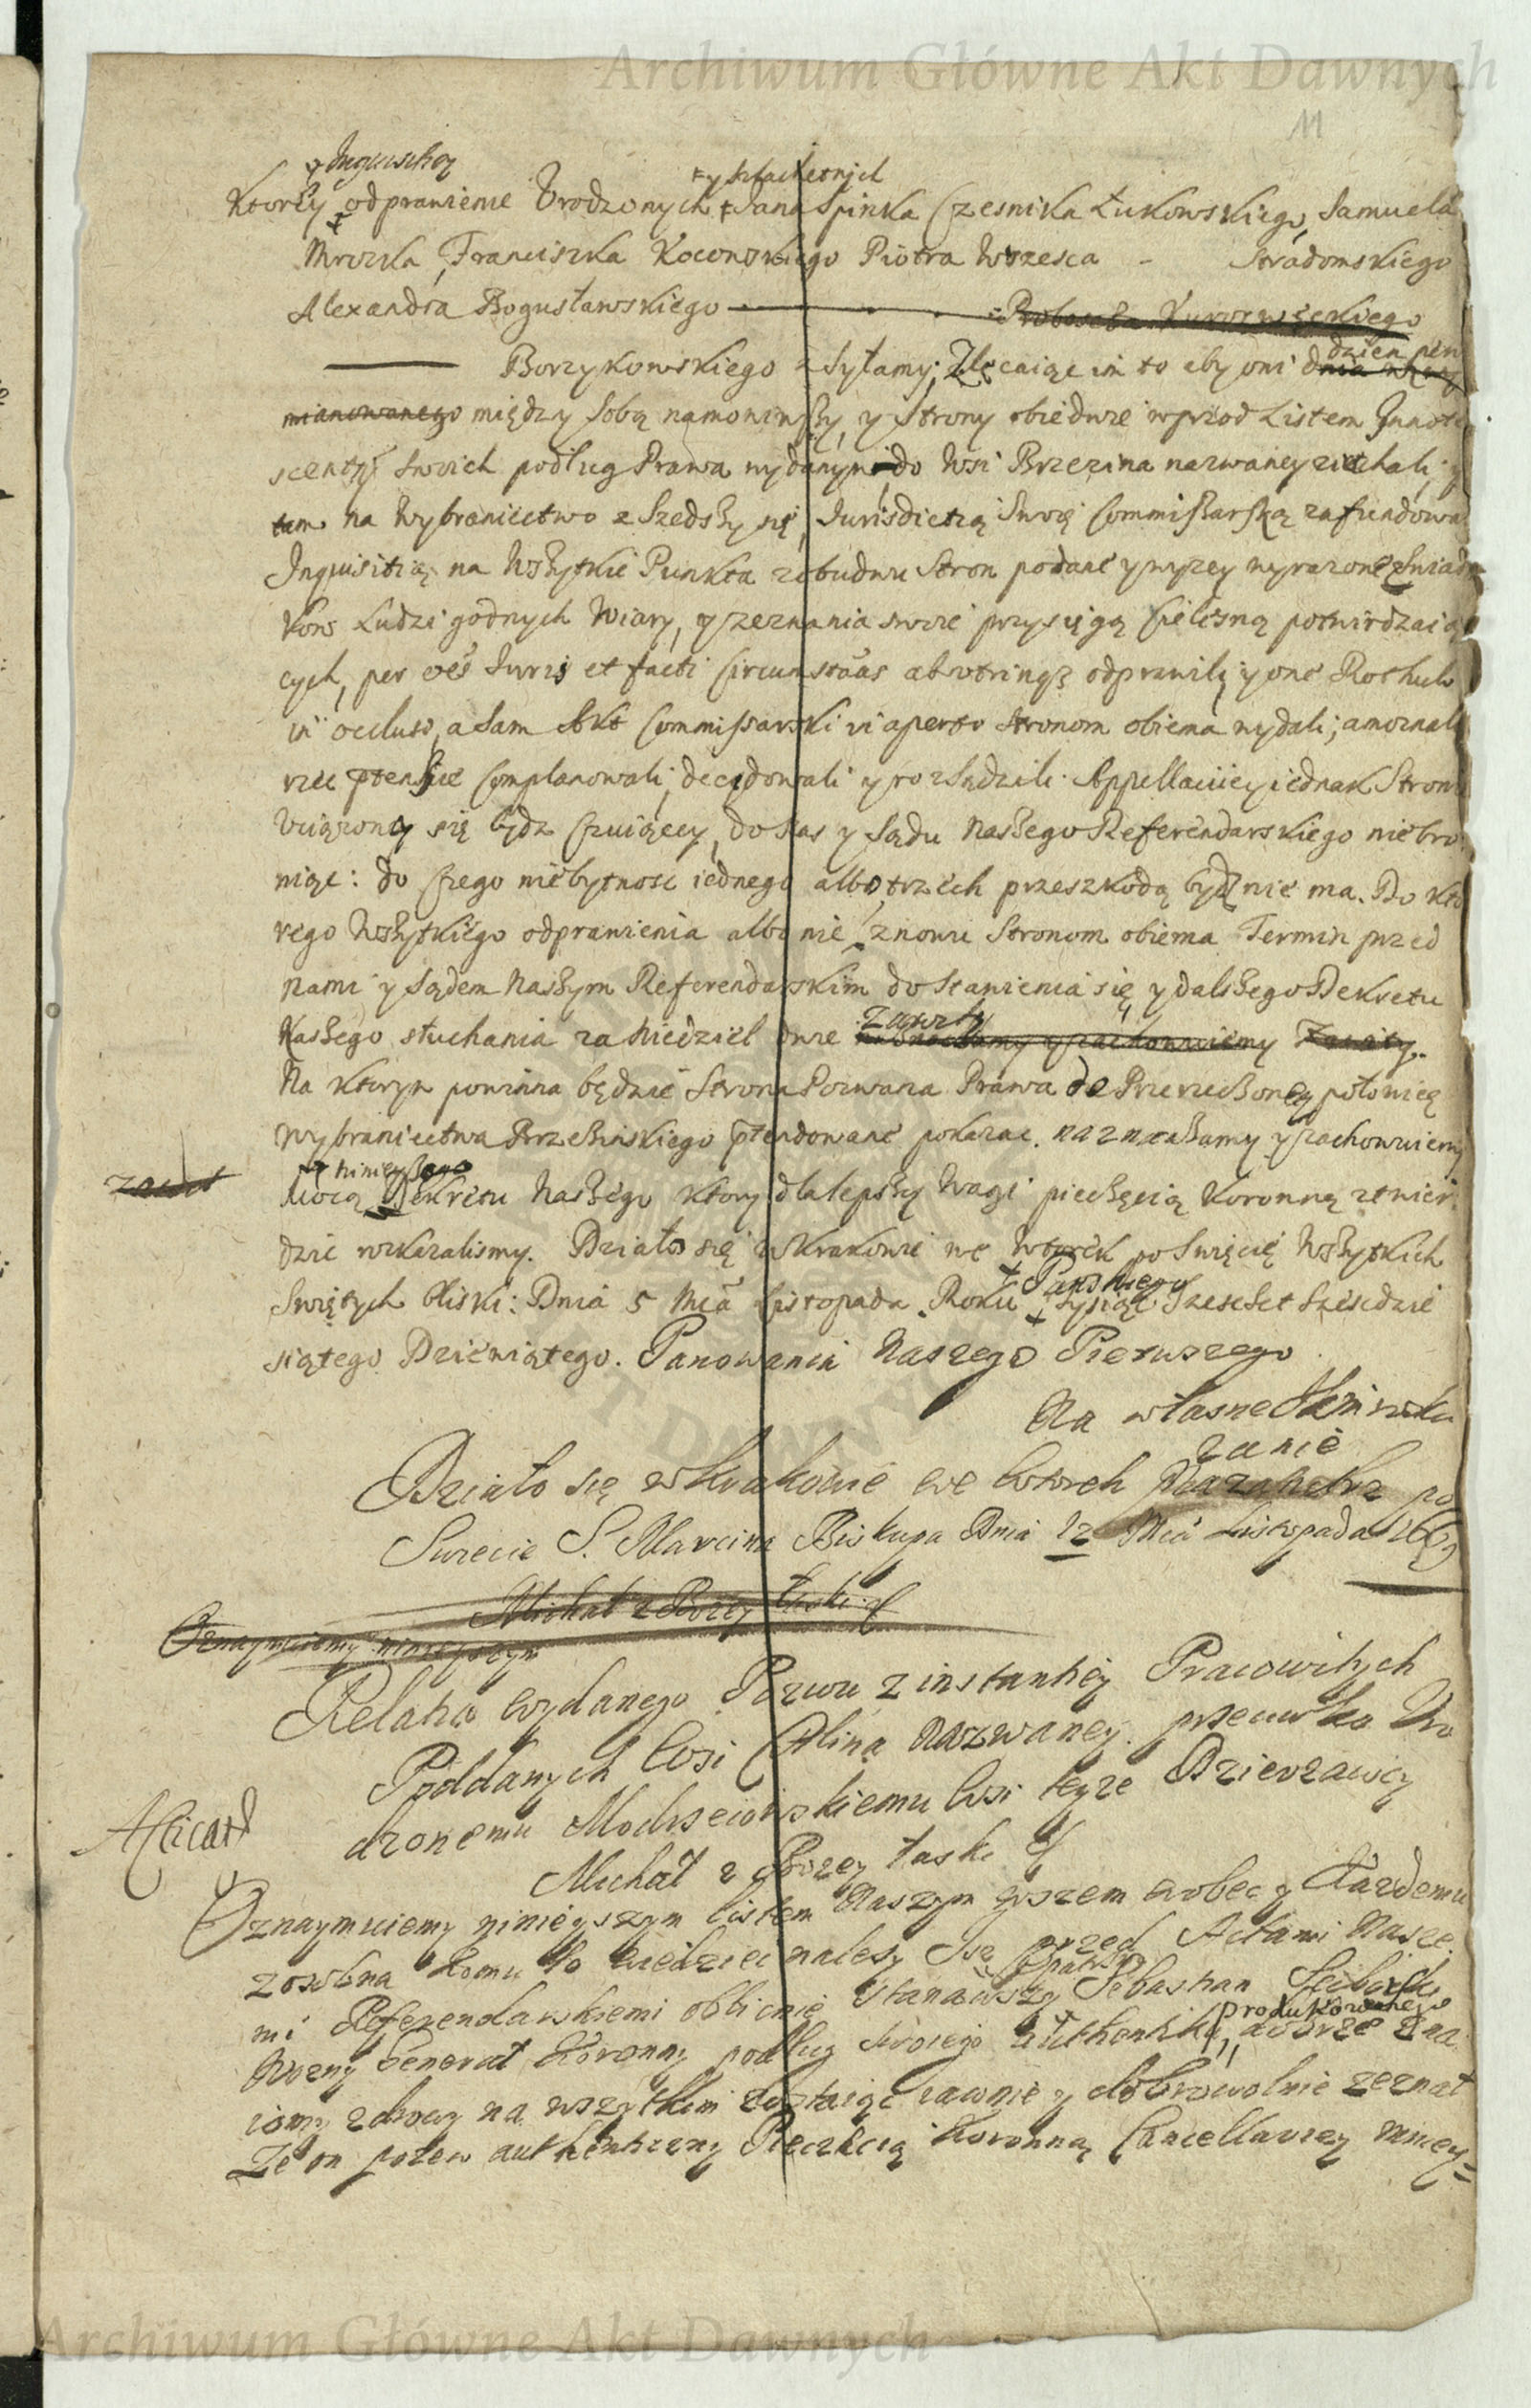 Archiwum Główne Akt Dawnych
11
y Inquisitiey
y szlachetnych
Ktorey odprawienie Vrodzonych Jana Spinka Czesnika Łukowskiego, Samuela
Mrozka, Franciszka Koconskiego Piotra Wrzesca - Stradomskiego
Alexandra Bogusławskiego Proboscza Kurozwęckiego
dzien pew
Borzykowskiego zsyłamy; Zlecaiąc im to aby oni dnia
mianowanego między sobą namowiwszy, y Strony obiedwie wprzod Listem Innote
scentyi swoich podług Prawa wydanym, do Wsi Brzezina nazwaney ziechali, y
tam na Wybraniectwo zszedszy się, Jurisdictią swoię Commissarską zafundowa
Inquisitią na wszytkie Punkta zobudwu Stron podane y wyzey wyrazone z swiad
kow Ludzi godnych Wiary, y zeznania swoie przysięgą cielesną potwirdzaią
cych, per oes Juris et facti circumstãas ab utrinq3 odprawili, y one Rothulo
in occluso, a sam Akt Commissarski in aperto Stronom obiema wydali; a moznali
rzec ptensie complanowali, decydowali y rozsądzili. Appellatiiey iednak Stronie
Vciązoney się bydz czuiącey, do Nas y sądu Naszego Referendarskiego niebro
niąc: do czego niebytnosc iednego albo trzech przeszkodą bydz nie ma. Do kto
rego wszytkiego odprawienia albo nie, znowu Stronom obiema Termin przed
nami y sądem Naszym Referendarskim do stanienia się y dalszego Dekretu
Zawity
Naszego słuchania za Niedziel dwie naznaczamy y zachowuiemy Zawity.
Na ktorym powinna będzie Strona Pozwana Prawa do Przerzeczoney połowicą
wybraniectwa Brzezinskiego ptendowane pokazac. naznaczamy y zachowuiemy
zawit
ninieyszego
Mocą Dekretu Naszego ktory dla lepszy Wagi pieczęcią Koronną stwier
dzic rozkazalismy. Działo się w Krakowie we Wtorek po Swięcię Wszytkich
Pańskiego
Swiętych bliski: Dnia 5 Mcã Listopada Roku tysiąc szescset szescdzie
siątego Dziewiątego. Panowania Naszego Pierwszego.
Na własne
zanie
Działo się w Krakowie we Wtorek nazaiutrz po
Swiecie S. Marcina Biskupa Dnia 12 Mca Listopada 1669
Michał z Bozey Łaski
Oznaymuiemy ninieyszym
Relatia wydanego Pozwu z instantiey Pracowitych
Poddanych Wsi Glina Nazwaney. przeciwko Vro
dzonemu Modrzeiowskiemu Wsi teyze Dzierzawcy
Michał z Bozey łaski
Oznaymuiemy ninieyszym listem Naszym wszem wobec y Kazdemu
zosobna komu to wiedziec nalezy Isz przed Actami Nasze
mi Referendarskiemi oblicnie stanąwszy Opatrzny Sebastian
produkowanego
Wozny Generał Koronny podług swoiego authentiku, dobrze zna
iomy zdrowy na wszytkim zostaiąc iawnie y dobrowolnie zeznał
Ze on pozew authentyczny Pieczęcią Koronną Cancellariey mniey=
Archiwum Główne Akt Dawnych